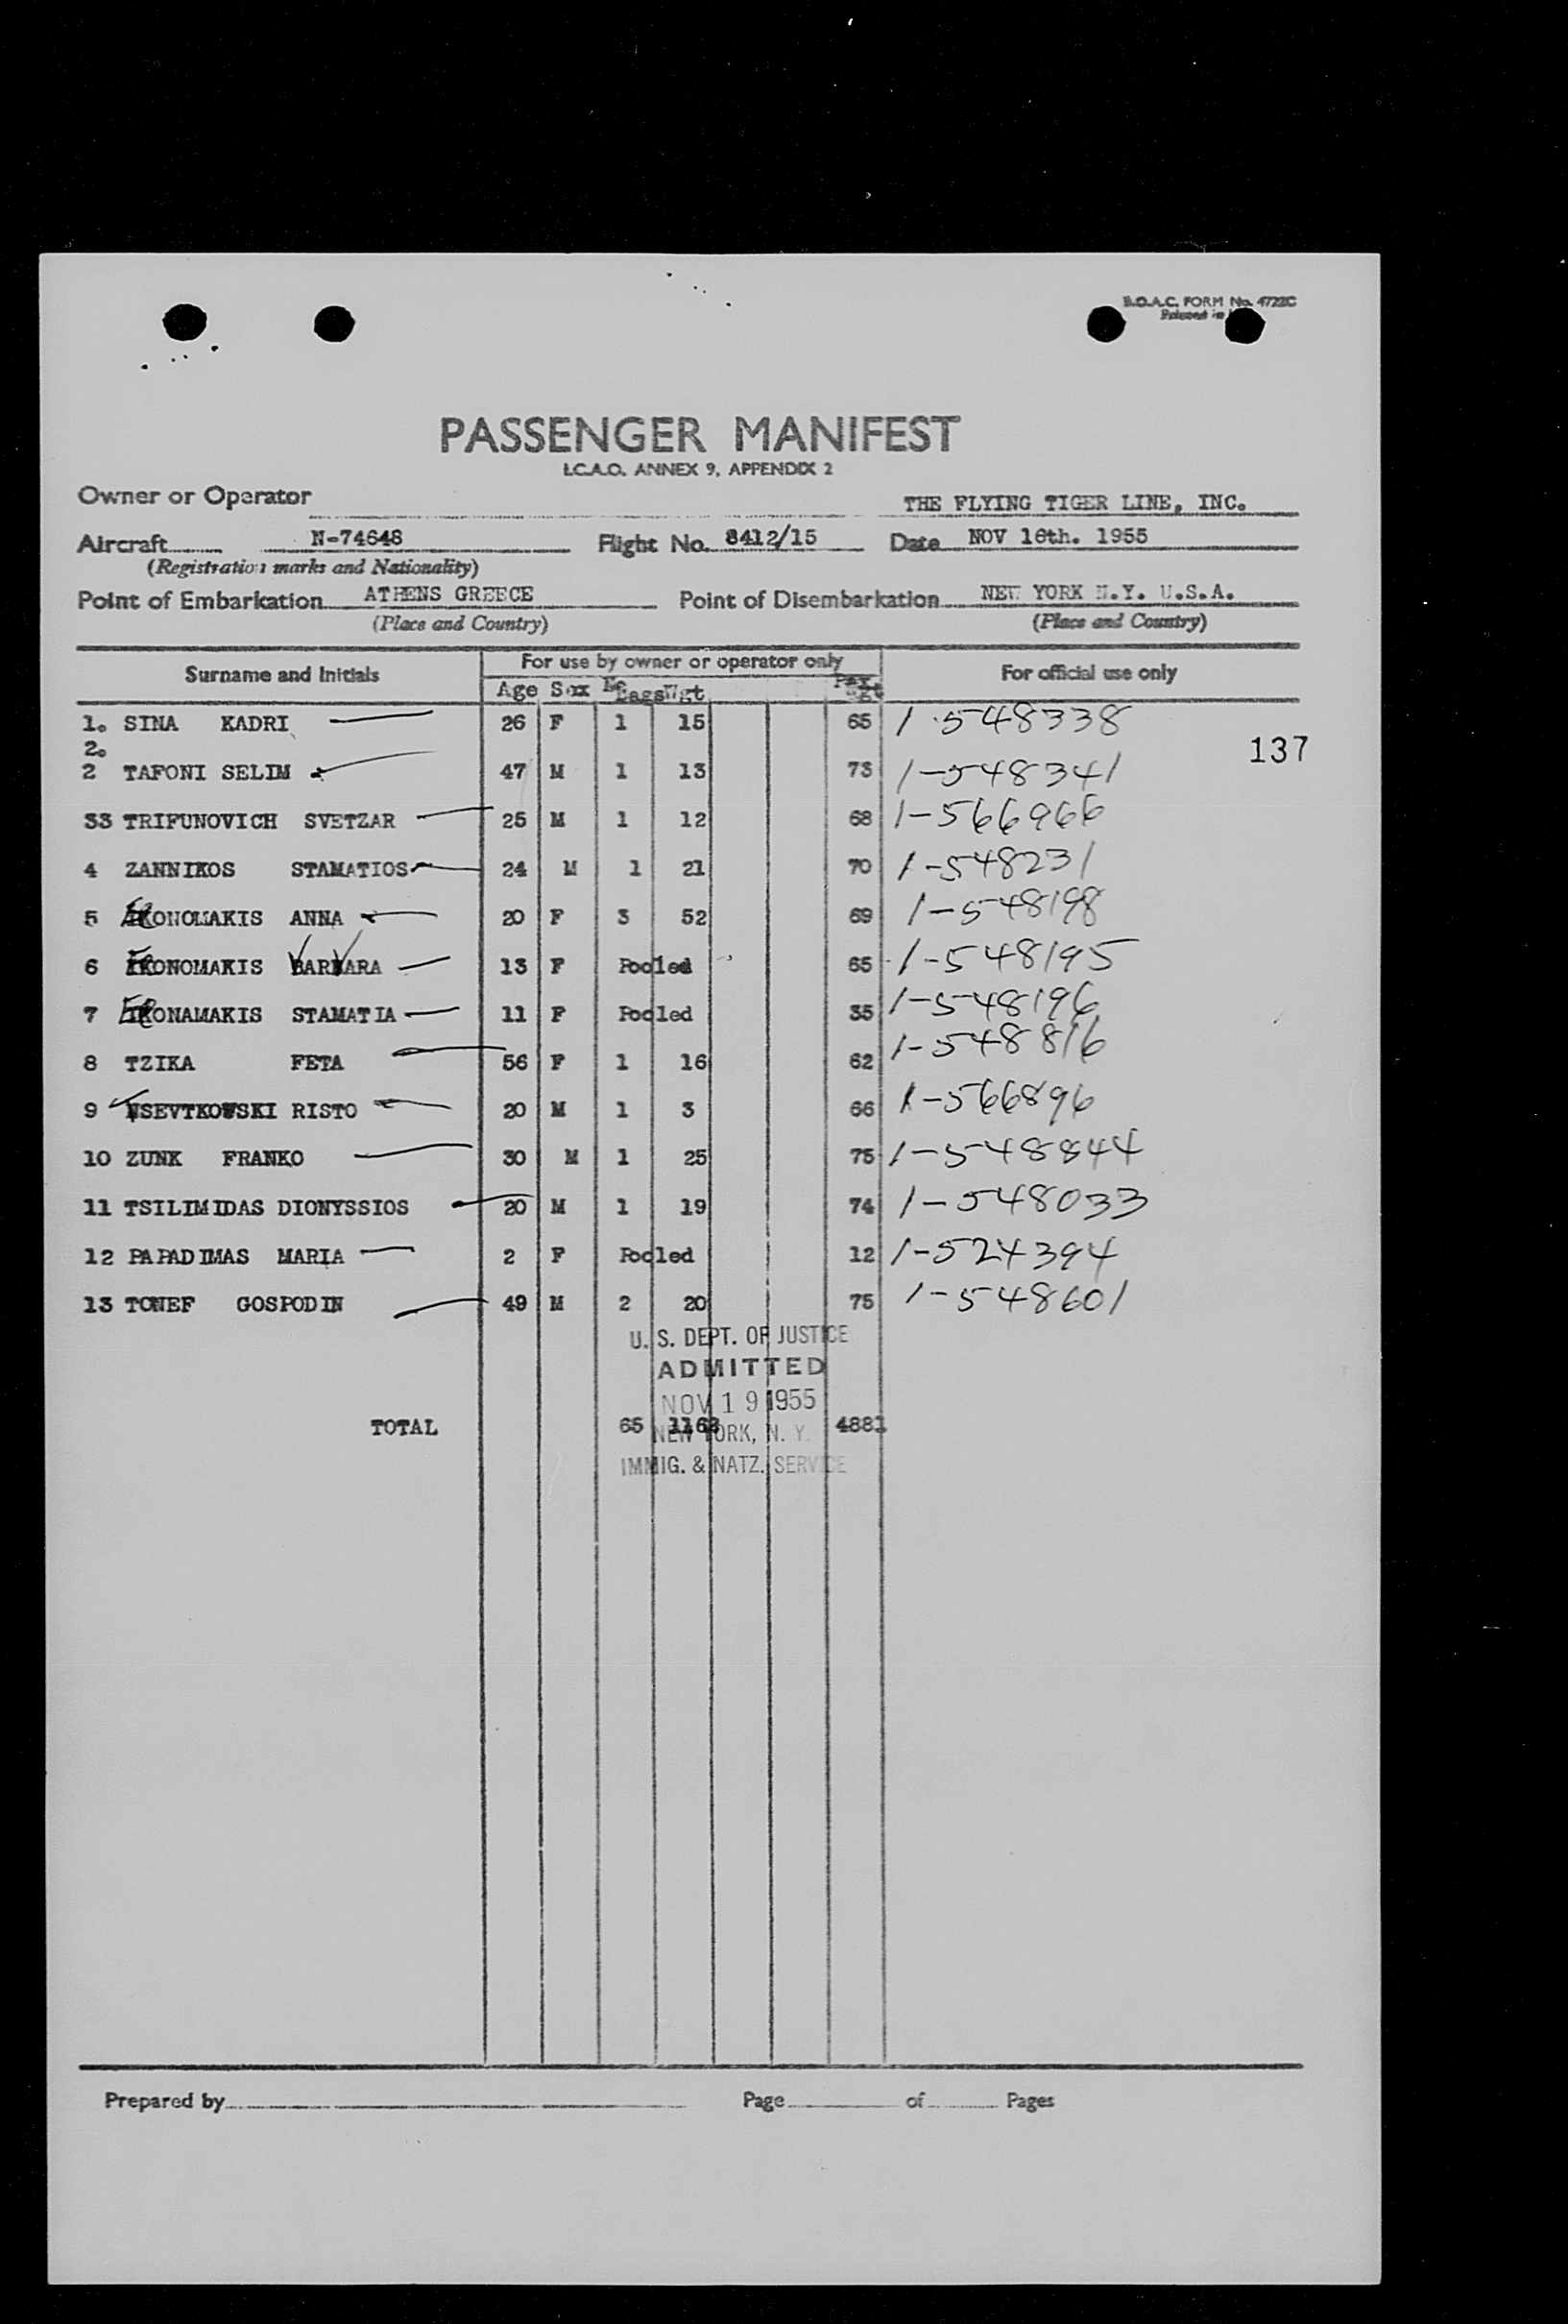 B.O.A.C. FORM No. 4722C
PASSENGER MANIFEST
I.C.A.O. ANNEX 9, APPENDIX 2
Owner or Operator THE FLYING TIGER LINE, INC.
Aircraft N-74648 Flight No. 8412/15 Date NOV 18th. 1955
(Registration marks and Nationality)
Point of Embarkation ATHENS GREECE Point of Disembarkation NEW YORK N.Y. U.S.A.
(Place and Country) (Place and Country)
Surname and Initials For use by owner or operator only For official use only
Age Sex No Bags Wgt Pax Wgt
1. SINA KADRI 26 F 1 15 65 1-548338
2.
137
2 TAFONI SELIM 47 M 1 13 73 1-548341
33 TRIFUNOVICH SVETZAR 25 M 1 12 68 1-566966
4 ZANNIKOS STAMATIOS 24 M 1 21 70 1-548231
5 EKONOMAKIS ANNA 20 F 3 52 69 1-548198
6 EKONOMAKIS VARVARA 13 F Pooled 65 1-548195
7 EKONAMAKIS STAMATIA 11 F Pooled 35 1-548196
8 TZIKA FETA 56 F 1 16 62 1-548816
9 SEVTKOWSKI RISTO 20 M 1 3 66 1-566896
10 ZUNK FRANKO 30 M 1 25 75 1-548844
11 TSILIMIDAS DIONYSSIOS 20 M 1 19 74 1-548033
12 PAPADIMAS MARIA 2 F Pooled 12 1-524394
13 TONEF GOSPODIN 49 M 2 20 75 1-548601
U. S. DEPT. OF JUSTICE
ADMITTED
NOV 19 1955
TOTAL 65 1168 4881
NEW YORK, N. Y.
IMMIG. & NATZ. SERVICE
Prepared by Page of Pages